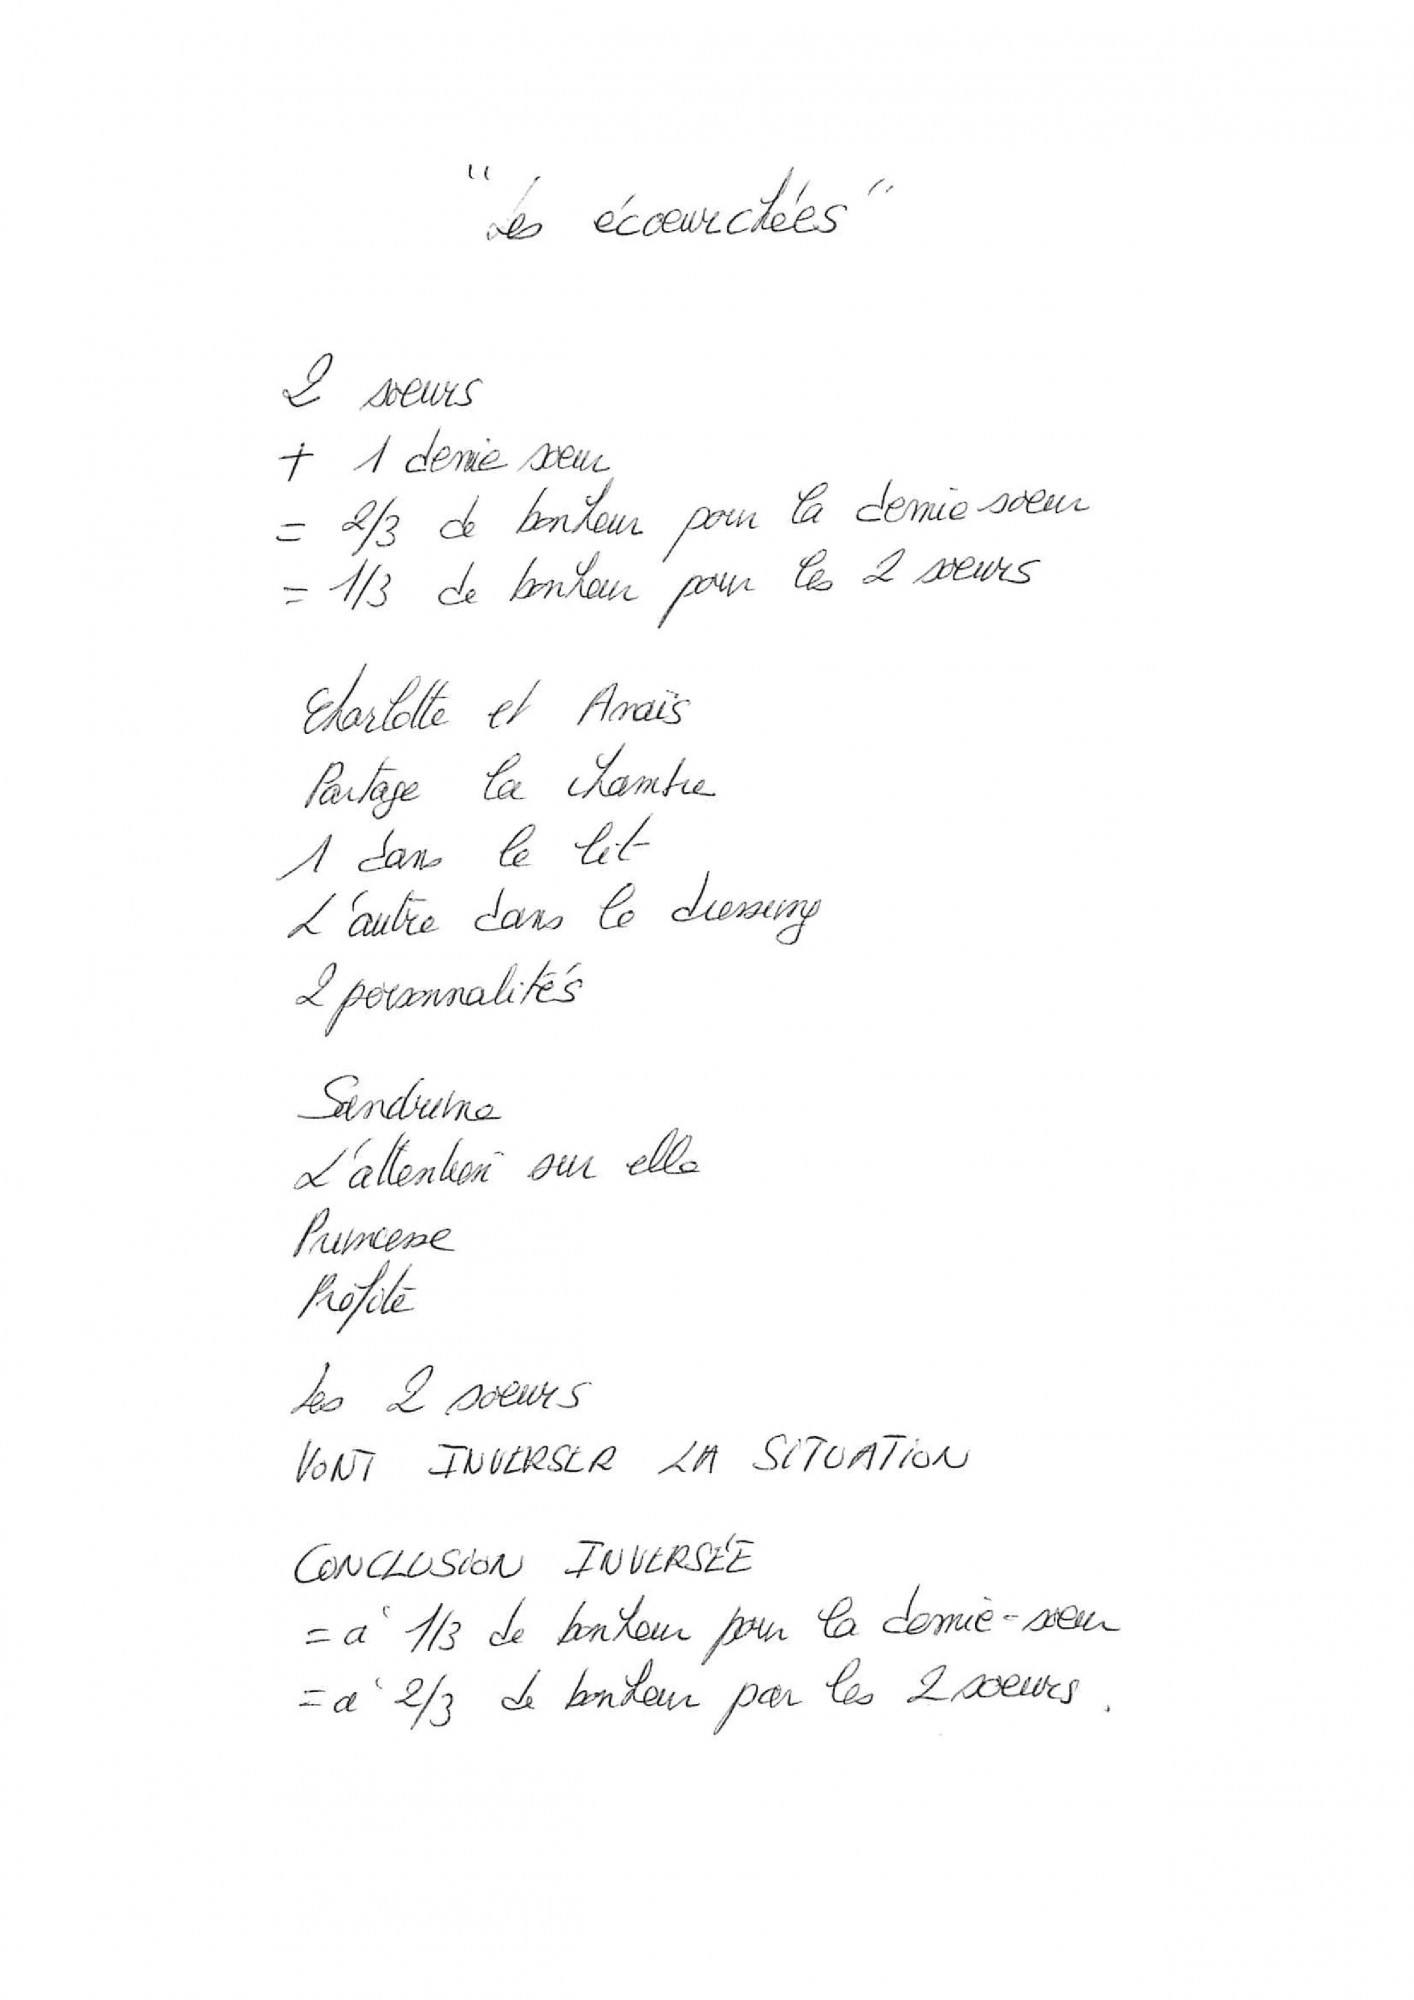 "Les écoeurchées"
2 soeurs
+ 1 demie soeur
= 2/3 de bonheur pour la demie soeur
= 1/3 de bonheur pour les 2 soeurs
Charlotte et Anaïs
Partage la chambre
1 dans le lit
L'autre dans le dressing
2 personnalités
Sandrine
L'attention sur elle
Princesse
Profite
Les 2 soeurs
VONT INVERSER LA SITUATION
CONCLUSION INVERSÉE
= à 1/3 de bonheur pour la demie-soeur
= à 2/3 de bonheur par les 2 soeurs.